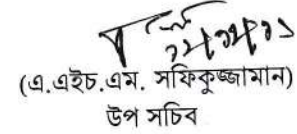 (এ.এইচ.এম. সফিকুজ্জামান)
উপ সচিব